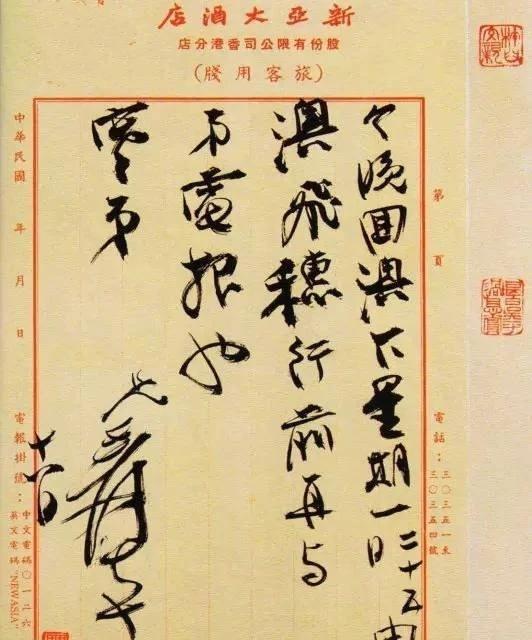 新亞大酒店
股份有限公司香港分店
(旅客用牋)
第 頁
電話:三〇三五一至三〇三五四號
今晚回澳下星期一日二十五由
澳飛穗行前再与
弟電报也
弟
兄爰大千
中華民國 年 月 日
電報掛號:中文電碼〇一二六
英文電碼"NEWASIA"